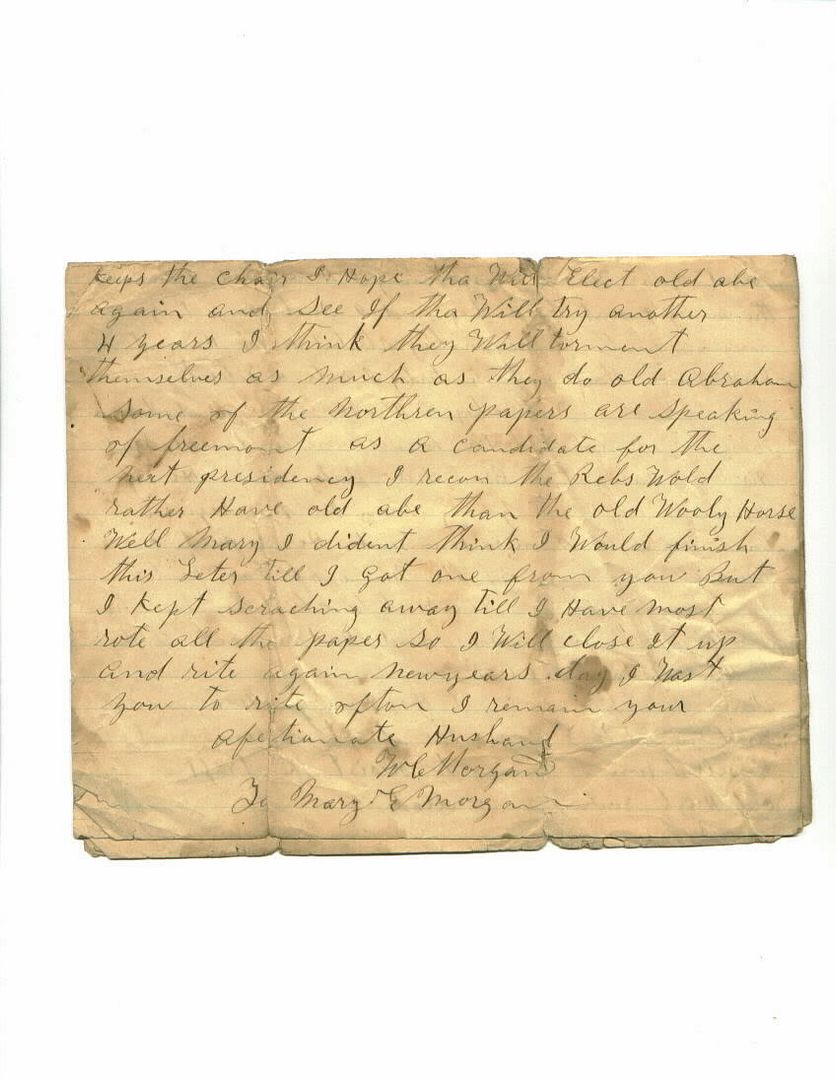 Keeps the chair I Hope tha Will Elect old abe
again and see If tha Will try another
4 years I think they Will torment
themselves as much as they do old Abraham
some of the Northren papers are speaking
of freemont as a candidate for the
next presidency I recon the Rebs Wold
rather Have old abe than the old Wooly Horse
Well Mary I dident think I Would finish
this Leter till I got one from you But
I Kept scraching away till I Have most
rote all the paper so I Will close It up
and rite again newyears day I Wast
you to rite ofton I remain your
afectionate Husband
W C Morgan
To Mary E Morgan